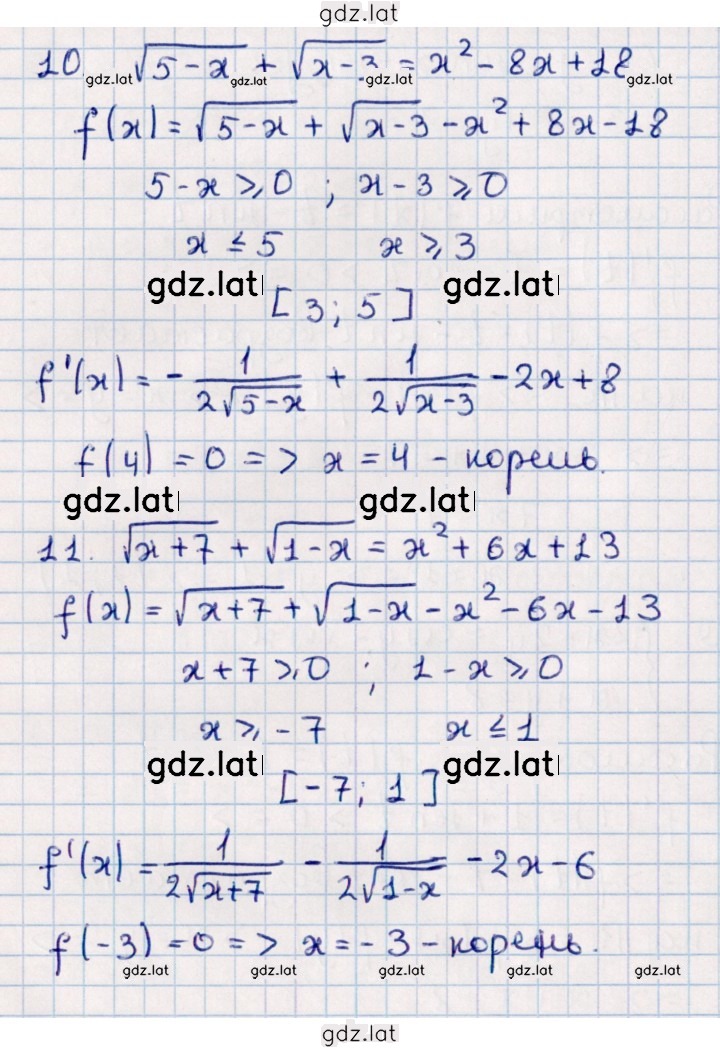 gdz.lat
10 √(5-x) + √(x-3) = x² - 8x + 18
gdz.lat gdz.lat gdz.lat gdz.lat
f(x) = √(5-x) + √(x-3) - x² + 8x - 18
5-x ⩾ 0 ; x-3 ⩾ 0
x ≤ 5 x ⩾ 3
gdz.lat gdz.lat
[3; 5]
f'(x) = - 1/(2√(5-x)) + 1/(2√(x-3)) - 2x + 8
f(4) = 0 => x = 4 - корень.
gdz.lat gdz.lat
11. √(x+7) + √(1-x) = x² + 6x + 13
f(x) = √(x+7) + √(1-x) - x² - 6x - 13
x+7 ⩾ 0 ; 1-x ⩾ 0
x ⩾ -7 x ≤ 1
gdz.lat gdz.lat
[-7; 1]
f'(x) = 1/(2√(x+7)) - 1/(2√(1-x)) - 2x - 6
f(-3) = 0 => x = -3 - корень.
gdz.lat gdz.lat gdz.lat gdz.lat gdz.lat
gdz.lat